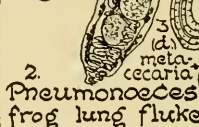 3
(d.)
meta-
cecaria
2.
Pneumonoeces
frog lung fluke